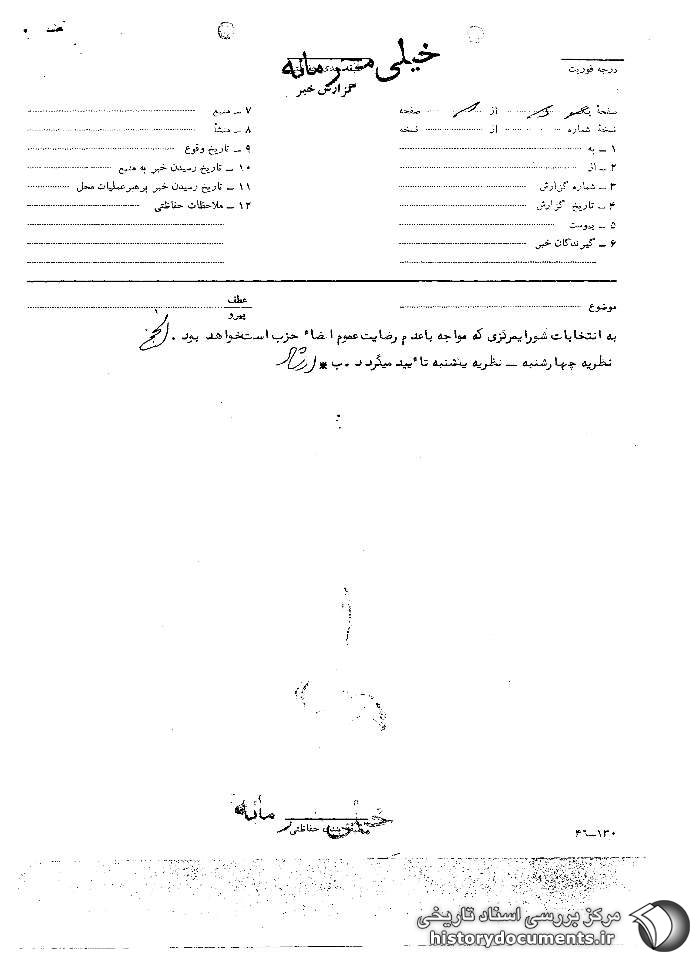 خیلی محرمانه
طبقه‌بندی حفاظتی
درجه فوریت
گزارش خبر
صفحهٔ از صفحه
نسخهٔ شماره از نسخه
۱ ــ به
۲ ــ از
۳ ــ شماره گزارش
۴ ــ تاریخ گزارش
۵ ــ پیوست
۶ ــ گیرندگان خبر
۷ ــ منبع
۸ ــ منشأ
۹ ــ تاریخ وقوع
۱۰ ــ تاریخ رسیدن خبر به منبع
۱۱ ــ تاریخ رسیدن خبر برهبر عملیات محل
۱۲ ــ ملاحظات حفاظتی
موضوع
عطف
پیرو
به انتخابات شورایمرکزی که مواجه باعدم رضایت عموم اعضاء حزب است خواهد بود .
نظریه چهارشنبه ــ نظریه یکشنبه تائید میگردد . ب *
خیلی محرمانه
طبقه‌بندی حفاظتی
۴۶ــ۱۳۰
مرکز بررسی اسناد تاریخی
historydocuments.ir